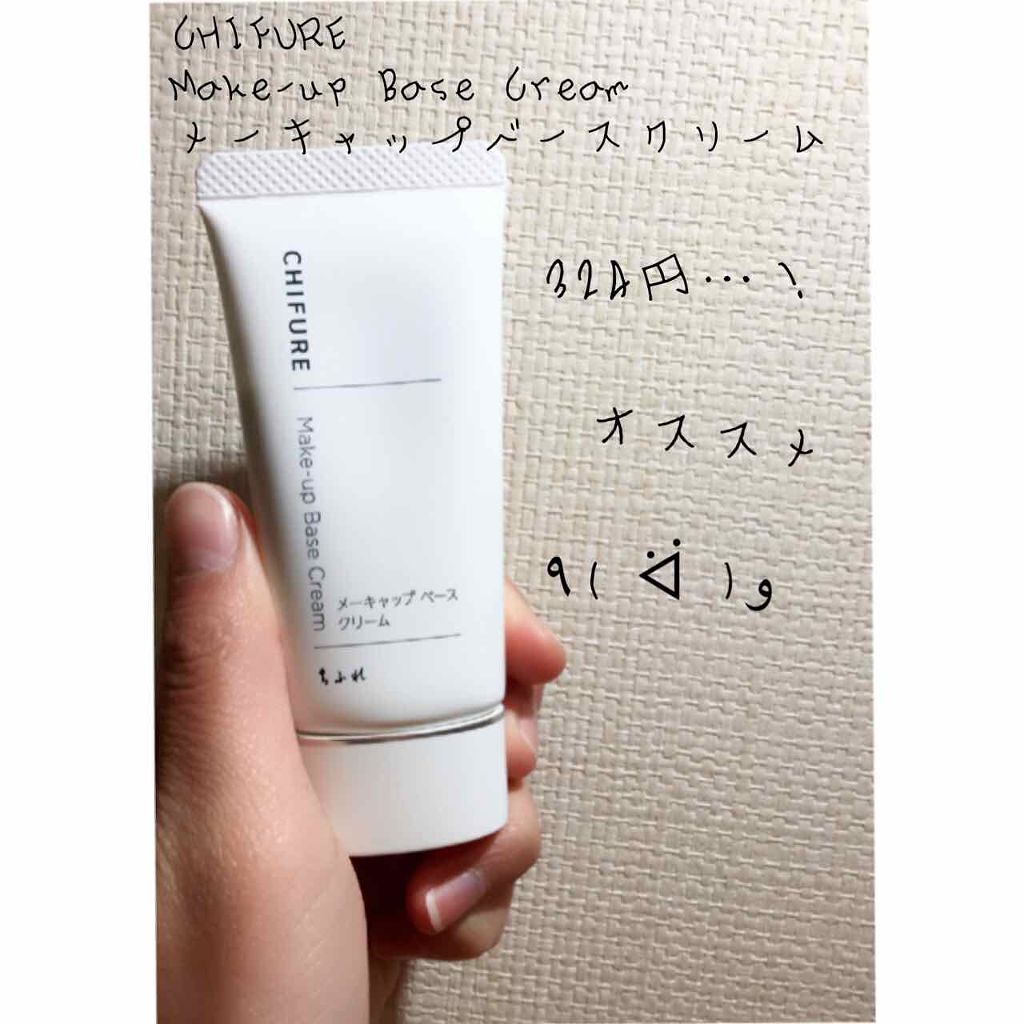 CHIFURE
Make-up Base Cream
メーキャップベースクリーム
324円…!
オススメ
٩( ᐛ )و
CHIFURE
Make-up Base Cream
メーキャップ ベース
クリーム
ちふれ